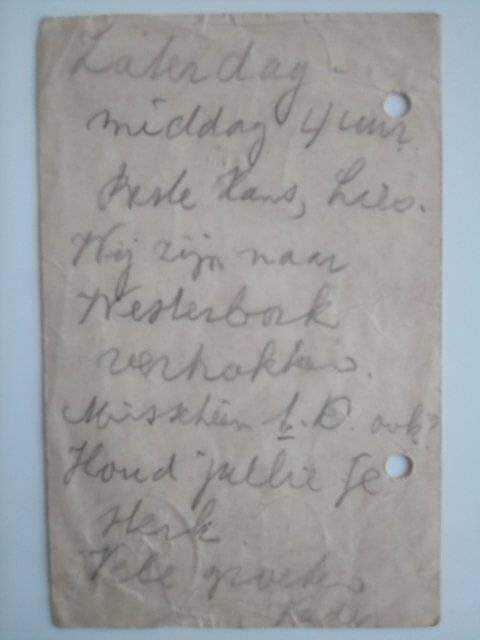 Zaterdag -
middag 4 uur.
Beste Hans, Lies.
Wij zijn naar
Westerbork
vertrokken.
Misschien L. D. ook?
Houd jullie ge
sterk
Vele groeten